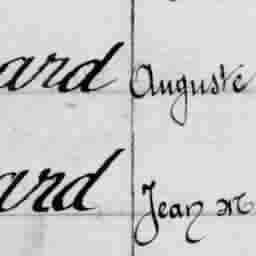 ard Auguste
ard Jean M